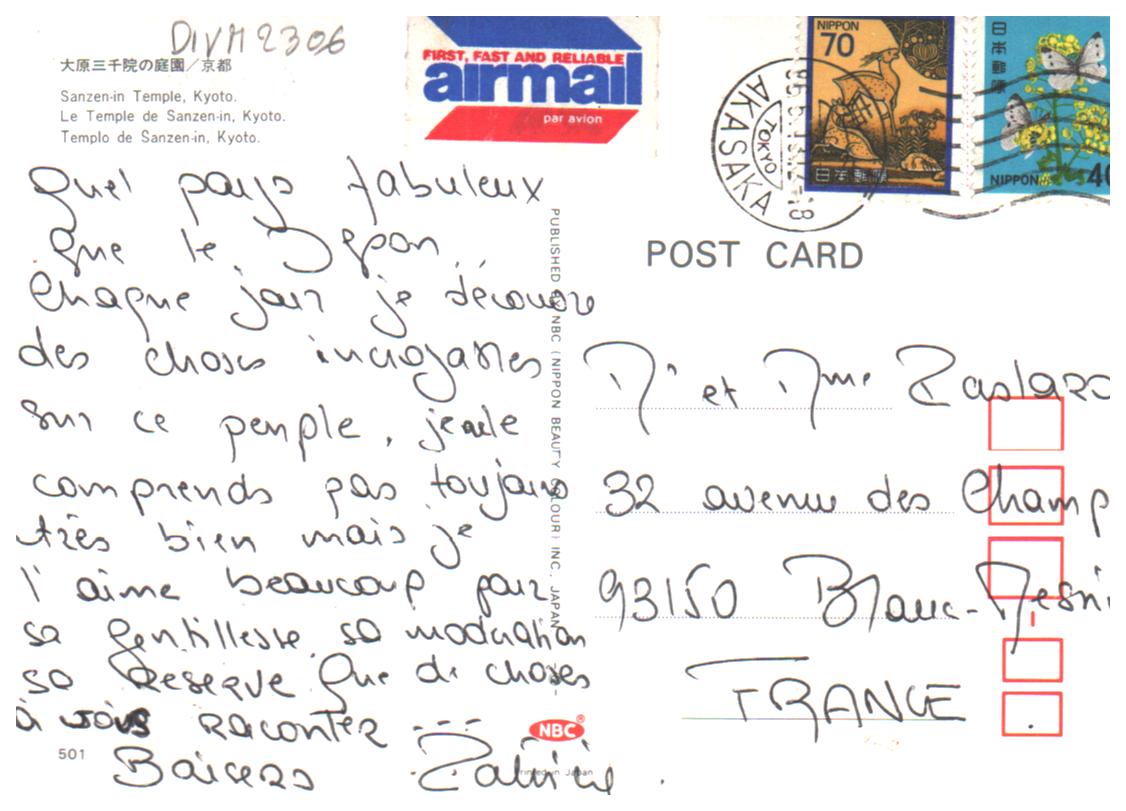 DIVM2306
大原三千院の庭園／京都
Sanzen-in Temple, Kyoto.
Le Temple de Sanzen-in, Kyoto.
Templo de Sanzen-in, Kyoto.
FIRST, FAST AND RELIABLE
airmail
par avion
NIPPON
70
日本郵便
日本郵便
NIPPON
40
AKASAKA
TOKYO
POST CARD
Quel pays fabuleux
que le Japon
Chaque jour je découvre
des choses incroyables
sur ce peuple, je le
comprends pas toujours
très bien mais je
l'aime beaucoup pour
sa gentillesse, sa modération
sa Réserve Que de choses
à vous Raconter ----
Baisers
PUBLISHED BY NBC (NIPPON BEAUTY COLOUR) INC. JAPAN
Mr et Mme
32 avenue des Champ
93150 Blanc-Mesni
FRANCE
501
NBC
Printed in Japan